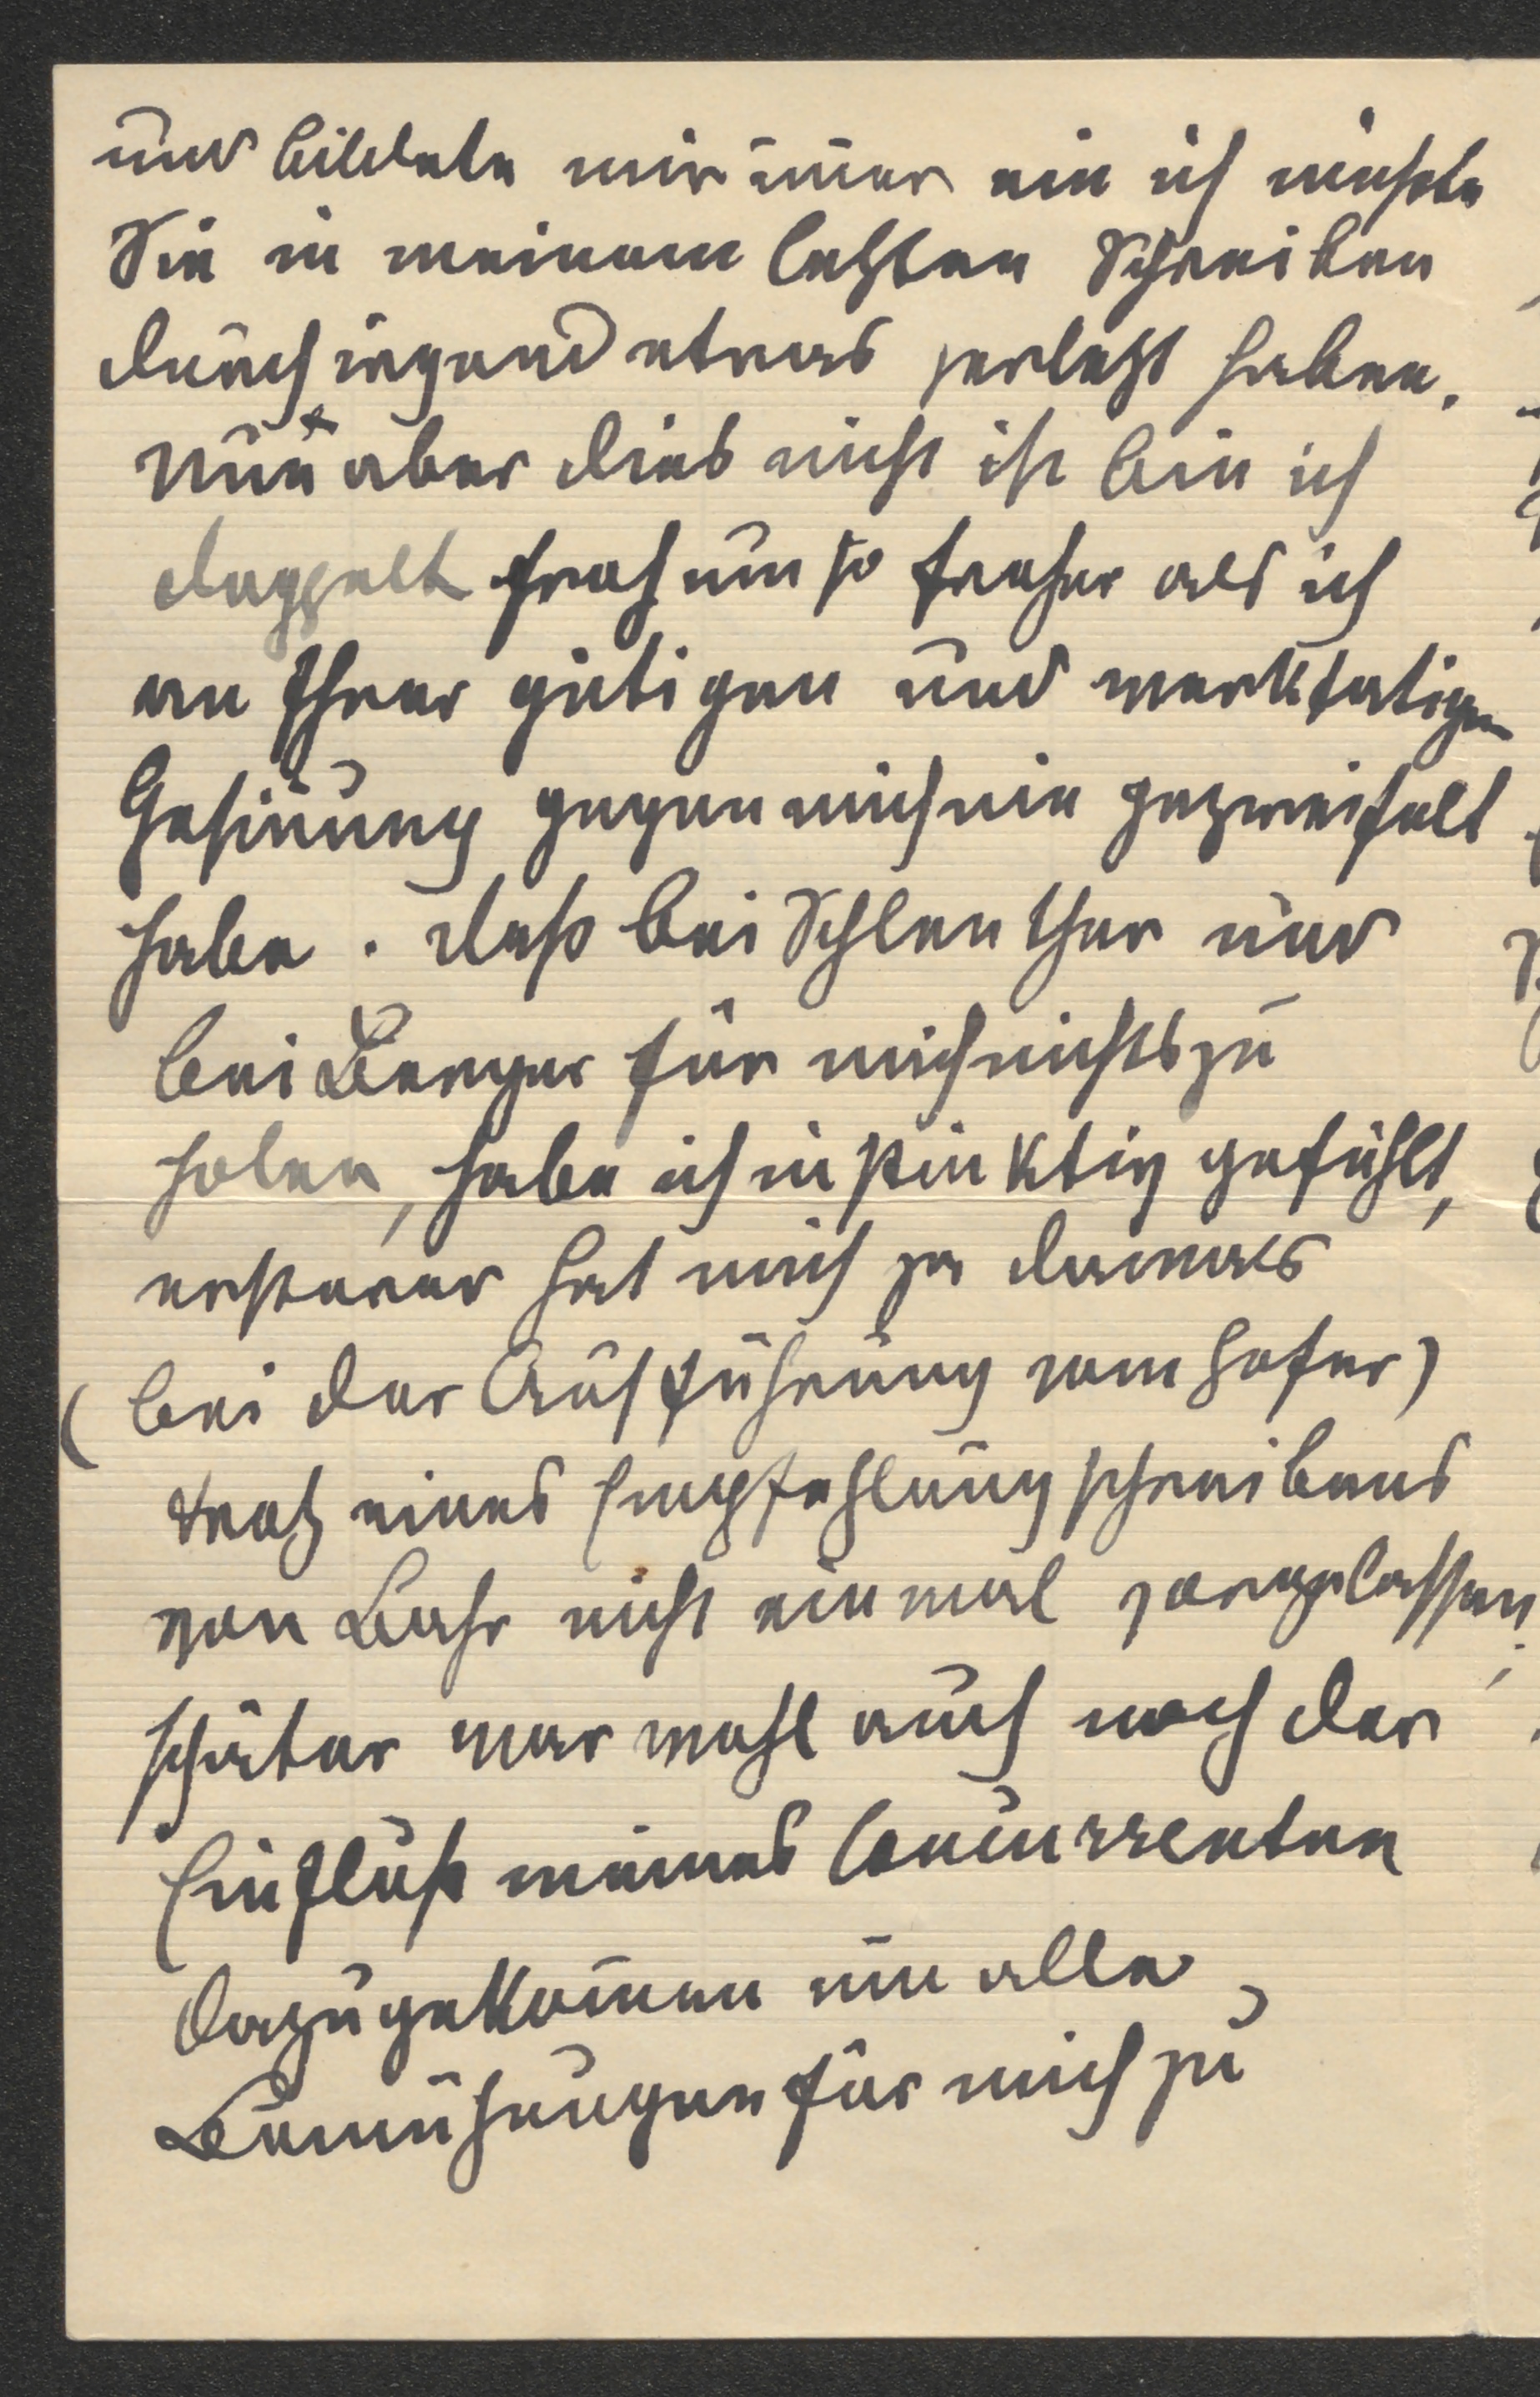 und bildete mir im̄er ein ich müsste
Sie in meinem letzten Schreiben
durch irgend etwas verletzt haben.
Nun aber dies nicht ist bin ich
doppelt froh um so froher als ich
an Ihrer gütigen und werktatigen
Gesin̄ung gegen mich nie gezweifelt
habe. Daß bei Schlenther und
bei Berger für mich nichts zu
holen, habe ich instinktiv gefühlt,
ersterer hat mich ja damals
(bei der Aufführung vom Hofer)
trotz eines Empfehlungschreibens
von Bahr nicht einmal vorgelassen;
später war wohl auch noch der
Einfluß meines Concurrenten
dazugekom̄en um alle
Bemühungen für mich zu